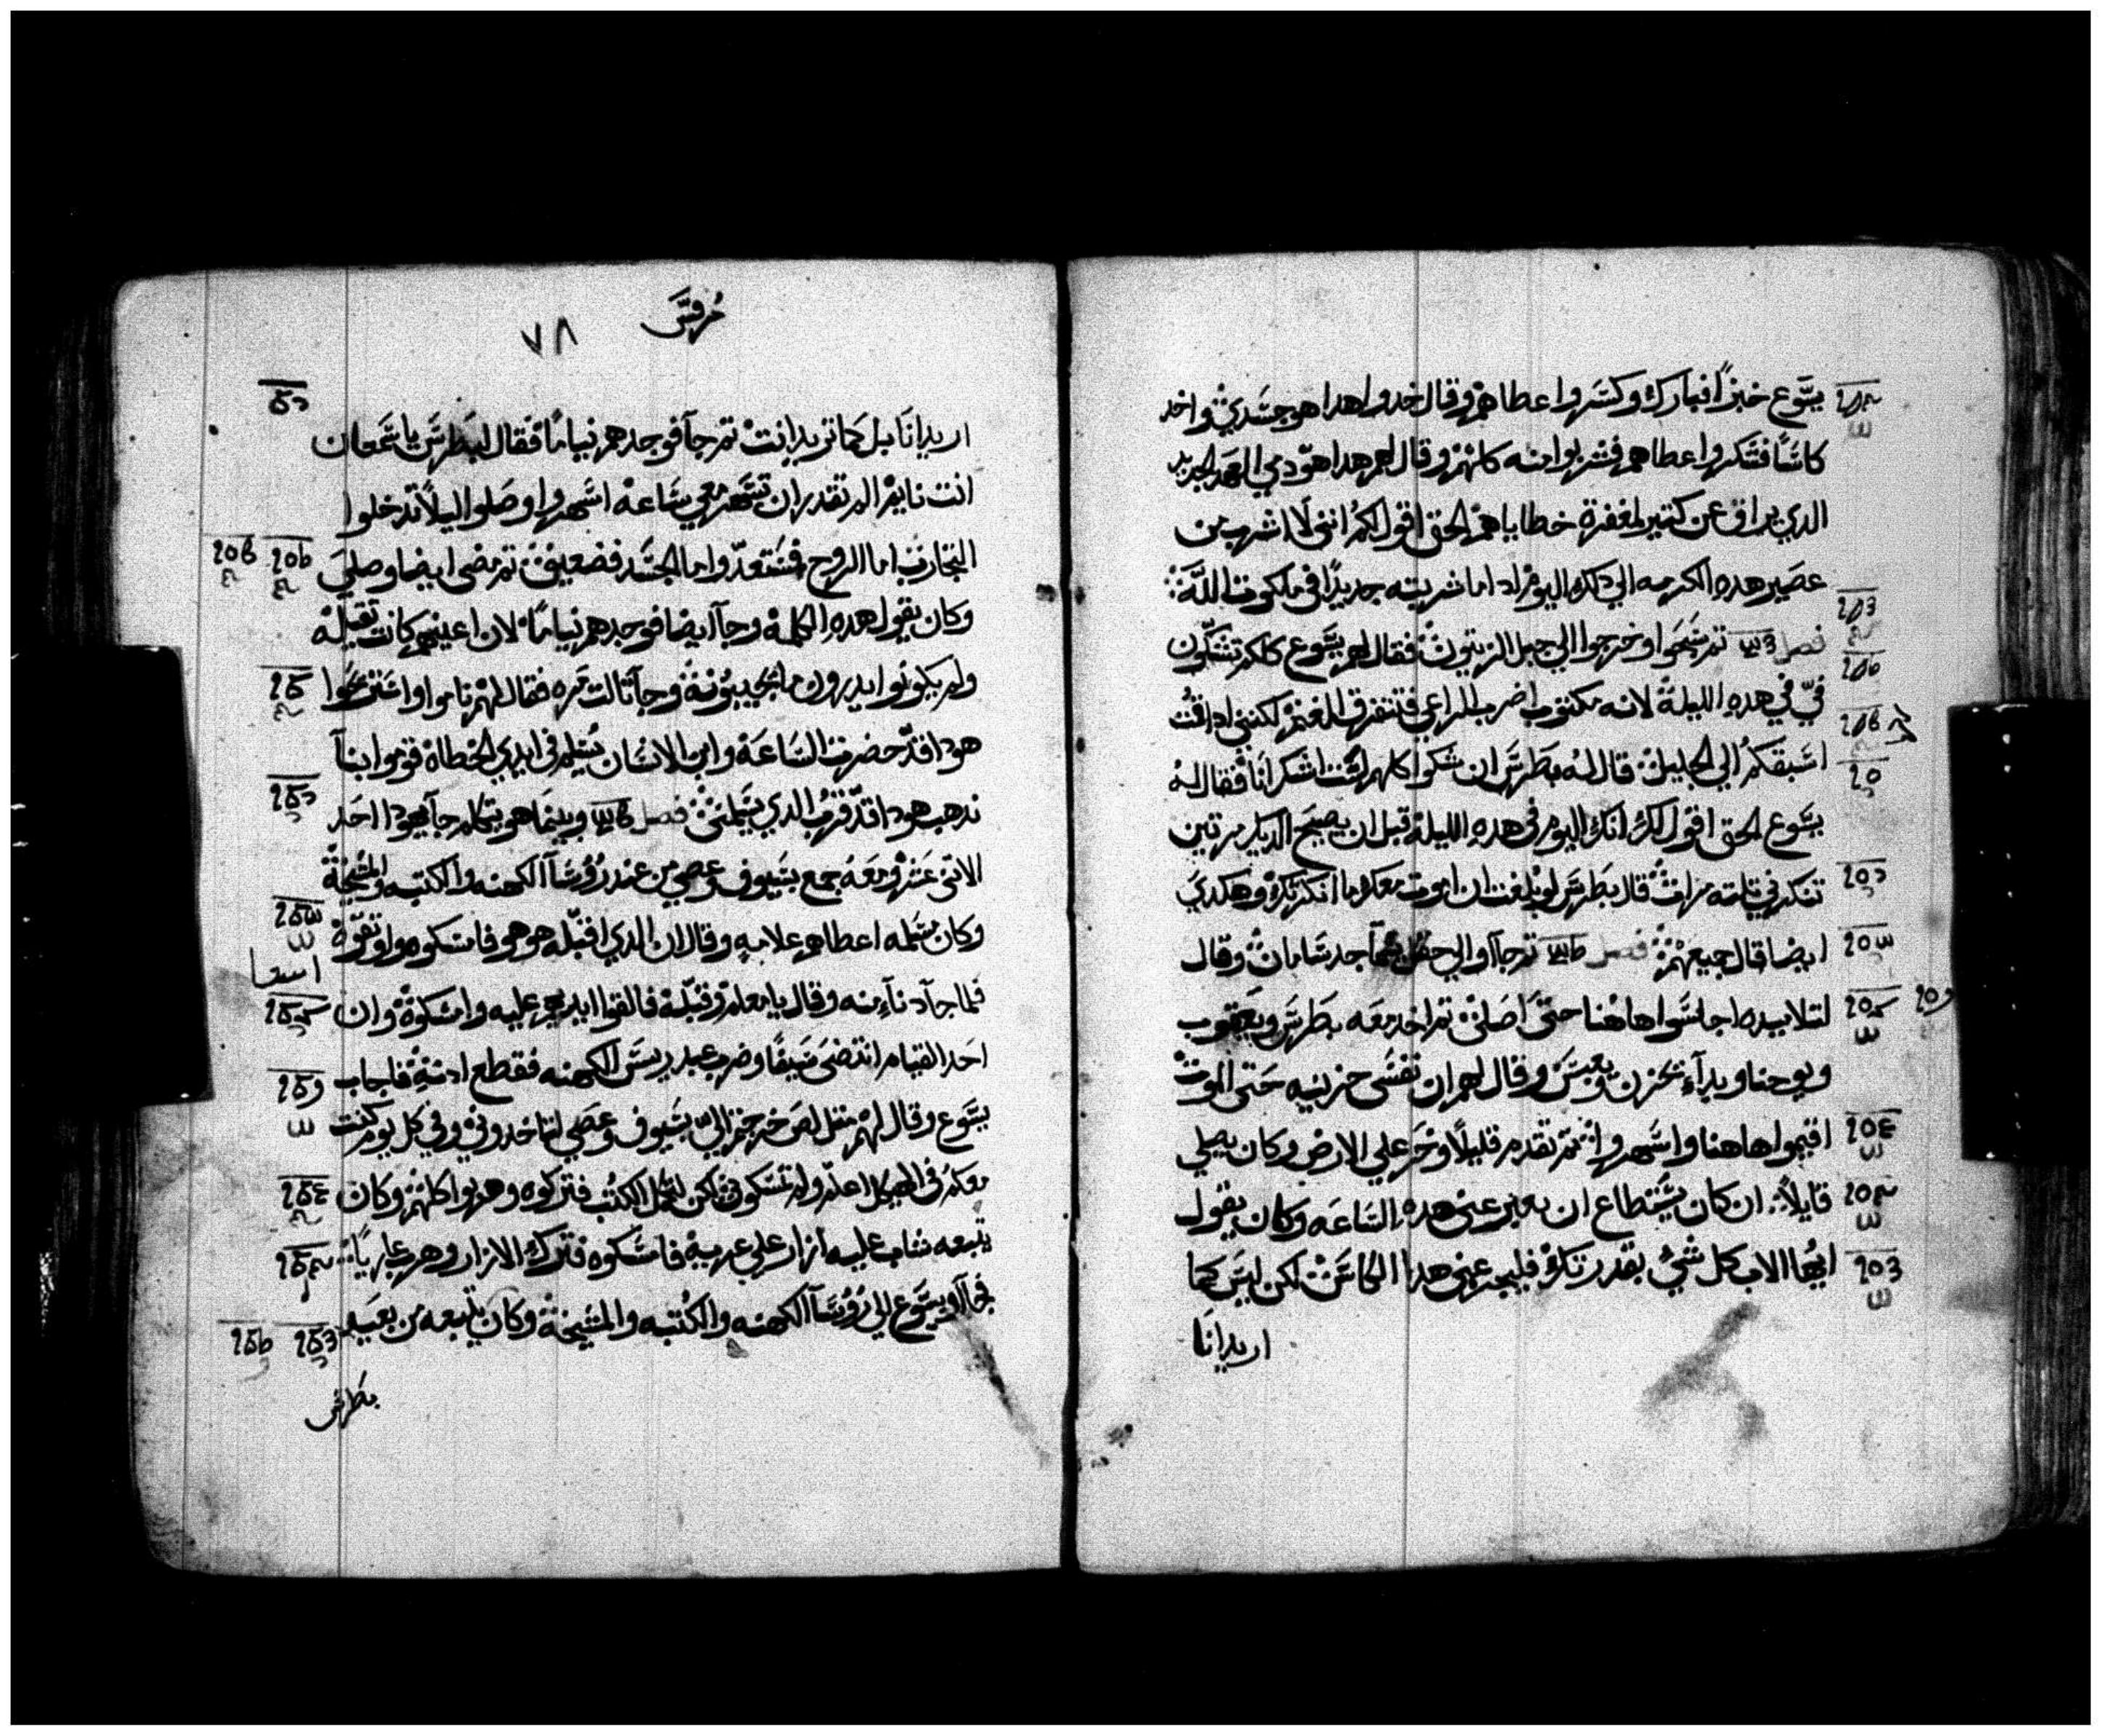 يسَّوع خبزًا فبارك وكسَّر واعطاهم وقال خدوا هدا هو جسَّدي واخد
كاسًَّا فشكر واعطاهم فشربوا منه كلهم وقال لهم هدا هو دمي العهد الجديد
الدي يراق عن كتير لمغفرة خطاياهم الحق اقول لكم انني لا اشرب من
عصير هده الكرمه الي دلك اليوم ادا ما شربته جديدًا في ملكوت اللَّه
فصل تم سَّبحَوا وخرجوا الي جبل الزيتون فقال لهم يسَّوع كلكم تشكّون
فيّ في هده الليلة لانه مكتوب اضرب الراعي فتتفرق الغنم لكنني ادا قمُت
اسَّبقكم الي الجليل قال له بطرسَّ ان شكوا كلهم لسَّت اشك انا فقال له
يسَّوع الحق اقول لك انك اليوم في هده الليلة قبل ان يصيح الديك مرتين
تنكرني تلته مرات قال بطرسَّ لو بلغت ان اموت معك ما انكرتك وهكدي
ايضا قال جميعهم فصل تم جآاوا الي حقل يسَّما جدسَّامان وقال
لتلاميده اجلسَّوا هاهُنا حتىَّ اصَلي تم اخد معَه بطرسَّ ويَعقوب
ويوحنا وبدآء يحزن ويعبسَّ وقال لهم ان نفسَّي حزينه حَتي الموت
اقيموا هاهنا واسَّهروا تم تقدم قليلًا وخرَ علي الارض وكان يصلي
قايلًا ان كان يسَّتطاع ان يعبر عني هده السَّاعَه وكان يقول
ايُها الاب كل شيُ بقدرتك فليجز عني هدا الكاسَّ لكن ليسَّ كما
اريد انَا
مُرقسَّ
٧٨
اريد انَا بل كما تريد انت تم جآ فوجدهم نيامًا فقال لبَطرسَّ يا سَّمعان
انت نايم الم تقدر ان تسَّهر معي سَّاعه اسَّهروا وصَلوا ليلًا تدخلوا
التجارب اما الروح فمسَّتعدّ واما الجسَّد فضعيف تم مضى ايضا وصلىَ
وكان يقول هده الكلمة وجآ ايضا فوجدهم نيامًا لان اعينهم كانت تقيلة
ولم يكونُوا يدرون ما يجيبوُنهُ وجآ تالت مَره فقال لهم ناموا واسَّتريحُوا
هودا قدّ حضرت السَّاعَة وابن الانسَّان يسُّلم في ايدي الخطاة قوموا بنآ
ندهب هودا قدّ قرُب الدي يسَّلمني فصل وبينما هو يتكلم جآ يهودا احَد
الاتنى عَشر ومعَهُ جمع بسَّيوف وعصي من عند رُؤُسَّآ الكهنه والكتبه والمشَّيخة
وكان مسَّلمه اعطاهم علامةٍ وقال ان الدي اقبّله هو هو فامسَّكوه واوتقوّهُ
فلما جآ دنآء منه وقال يا معلم وقبّلهُ فالقوا ايديهم عليه وامسَّكوهُ وان
احَد القيام انتضىَ سَّيفًا وضرب عبد ريسَّ الكهنه فقطع ادنهُ فاجاب
يسَّوع وقال لهم متل لصَ خرجتم اليّ بسَّيوف وعصَي لتاخدوني وفي كل يوم كنت
معكم في الهيكل اعلّم ولم تمسَّكوني لكن لتكمل الكتُب فتركوه وهربوا كلهم وكان
يتبعه شاب عليه ازار علي عريهِ فامسَّكوه فترك الازار وهرب عاريًا
فجآاو بيسَّوع الي رُؤُسَّآ الكهنه والكُتبه والمشَّيخهُ وكان يتبعه من بعيَد
بطرسَّ